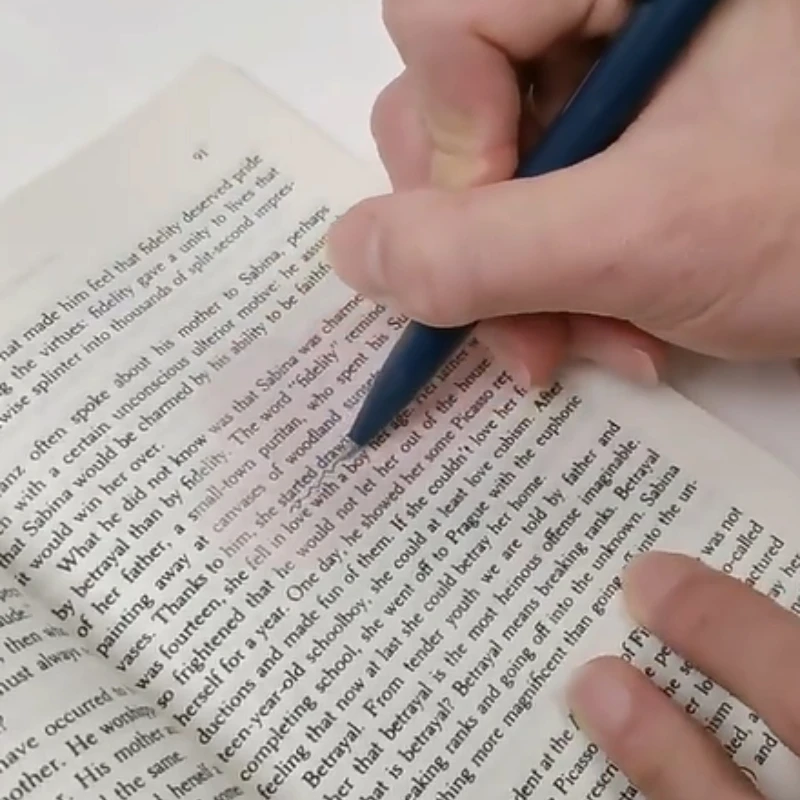 91
made him feel that fidelity deserved pride
the virtues: fidelity gave a unity to lives that
splinter into thousands of split-second impres-
often spoke about his mother to Sabina, perhaps
with a certain unconscious ulterior motive: he
that Sabina would be charmed by his ability to be
it would win her over.
What he did not know was that Sabina was
by betrayal than by fidelity. The word "fidelity"
of her father, a small-town puritan, who spent his
painting away at canvases of woodland
vases. Thanks to him, she started
was fourteen, she fell in love with a boy her age. Her father
so frightened that he would not let her out of the house
herself for a year. One day, he showed her some Picasso
ductions and made fun of them. If she couldn't love her
teen-year-old schoolboy, she could at least love cubism. After
completing school, she went off to Prague with the euphoric
feeling that now at last she could betray her home.
Betrayal. From tender youth we are told by father and
that betrayal is the most heinous offense imaginable.
is betrayal? Betrayal means breaking ranks. Betrayal
ranks and going off into the unknown. Sabina
more magnificent than going off into the un-
then
must always
have occurred
He
His mother
the same
was not
at the
Picasso
and